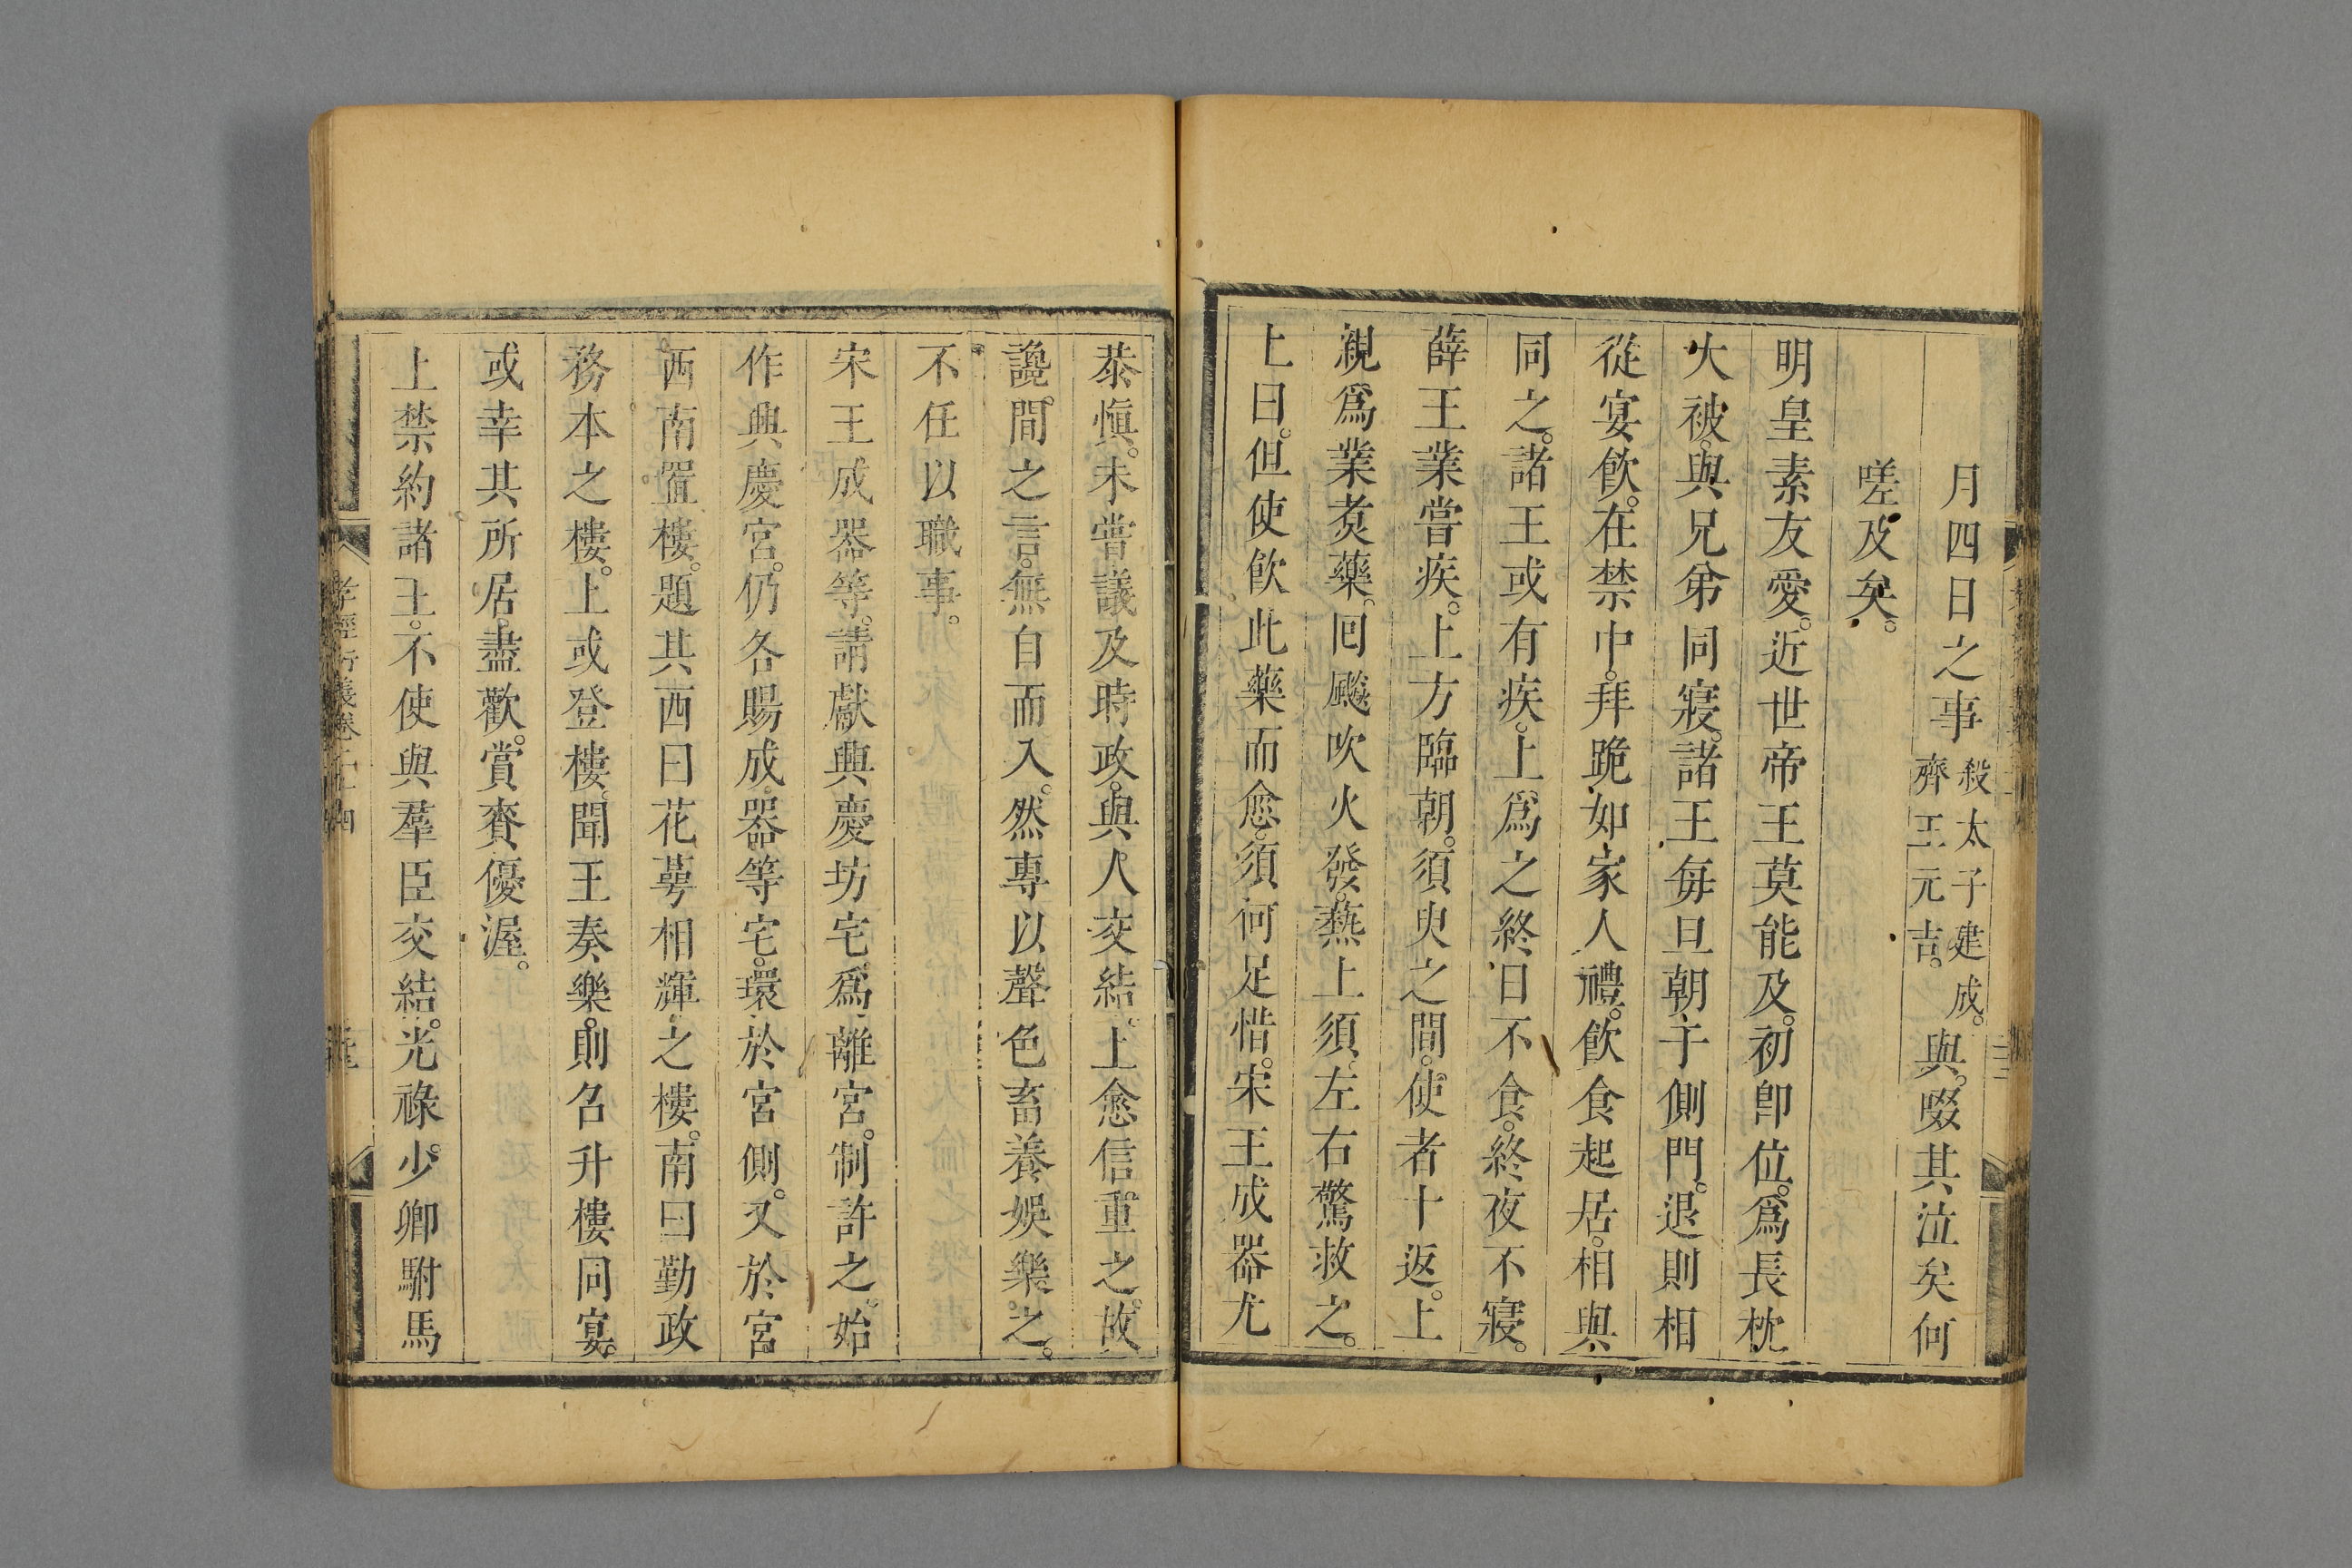 月四日之事殺太子建成。齊王元吉。與。啜其泣矣何
嗟及矣。
明皇素友愛。近世帝王莫能及。初卽位。爲長枕
大被。與兄弟同寢。諸王每旦朝于側門。退則相
從宴飮。在禁中。拜跪如家人禮。飮食起居。相與
同之。諸王或有疾。上爲之終日不食。終夜不寢。
薛王業嘗疾。上方臨朝。須臾之間。使者十返。上
親爲業煑藥。囘飈吹火發。爇上須。左右驚救之。
上曰。但使飮此藥而愈。須何足惜。宋王成器尤
恭愼。未嘗議及時政。與人交結。上愈信重之。故
讒。間之言。無自而入。然專以聲色畜養娛樂之。
不任以職事。
宋王成器等。請獻興慶坊宅爲離宮。制許之。始
作興慶宮。仍各賜成器等宅。環於宮側。又於宮
西南置樓。題其西曰花萼相輝之樓。南曰勤政
務本之樓。上或登樓。聞王奏樂。則召升樓同宴。
或幸其所居。盡歡。賞賚優渥。
上禁約諸王。不使與羣臣交結。光祿少卿駙馬
孝經衍義卷